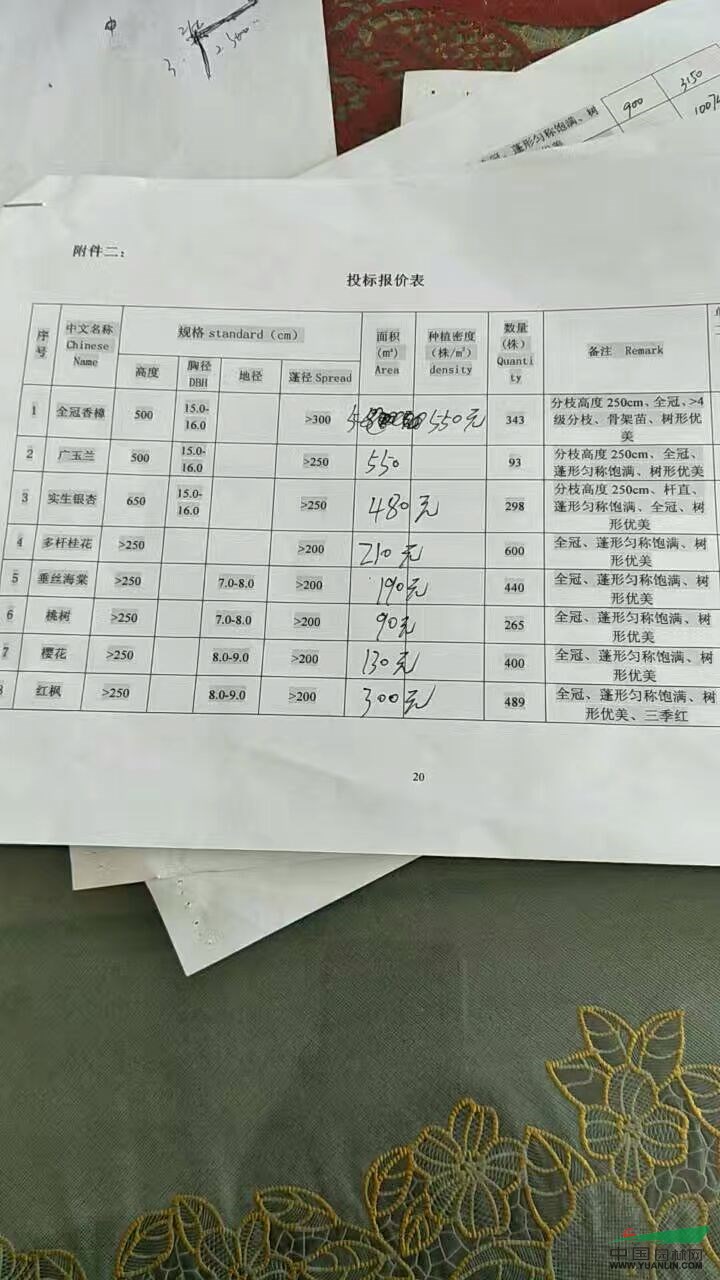 900
3150
蓬形匀称饱满、树
附件二：
投标报价表
序号 中文名称 Chinese Name 规格 standard（cm） 面积（㎡）Area 种植密度（株/㎡）density 数量（株）Quantity 备注 Remark
高度 胸径 DBH 地径 蓬径 Spread
1 全冠香樟 500 15.0-16.0 >300 550元 343 分枝高度 250cm、全冠、>4级分枝、骨架苗、树形优美
2 广玉兰 500 15.0-16.0 >250 550 93 分枝高度 250cm、全冠、蓬形匀称饱满、树形优美
3 实生银杏 650 15.0-16.0 >250 480元 298 分枝高度 250cm、杆直、蓬形匀称饱满、全冠、树形优美
4 多杆桂花 >250 >200 210元 600 全冠、蓬形匀称饱满、树形优美
5 垂丝海棠 >250 7.0-8.0 >200 190元 440 全冠、蓬形匀称饱满、树形优美
6 桃树 >250 7.0-8.0 >200 90元 265 全冠、蓬形匀称饱满、树形优美
7 樱花 >250 8.0-9.0 >200 130元 400 全冠、蓬形匀称饱满、树形优美
红枫 >250 8.0-9.0 >200 300元 489 全冠、蓬形匀称饱满、树形优美、三季红
20
中国园林网
WWW.YUANLIN.COM